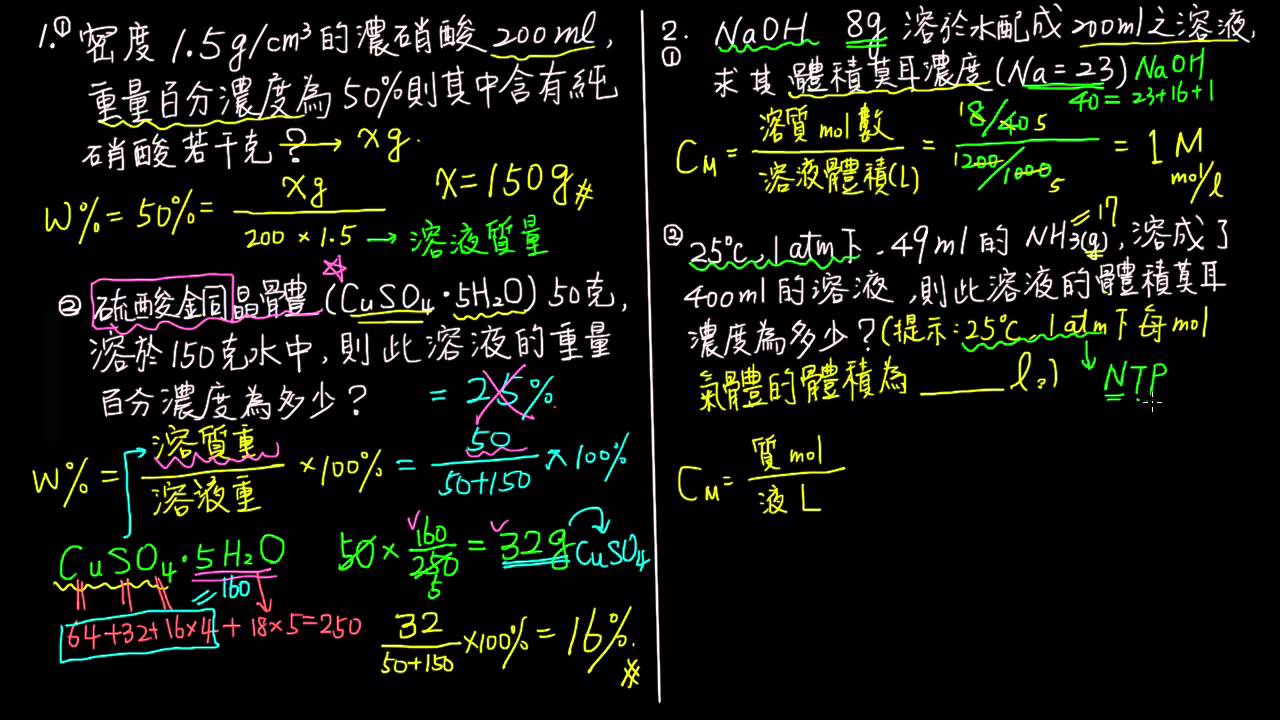 1.① 密度 1.5g/cm³的濃硝酸 200ml,
重量百分濃度為50%則其中含有純
硝酸若干克? → xg.
W% = 50% = xg / 200 × 1.5 → 溶液質量
x = 150g #
② 硫酸金同晶體 (CuSO₄·5H₂O) 50克,
溶於150克水中,則此溶液的重量
百分濃度為多少? = 25%
W% = 溶質重 / 溶液重 ×100% = 50 / 50+150 × 100%
CuSO₄·5H₂O
=160
64+32+16×4 + 18×5=250
50 × 160 / 250 = 32g CuSO₄
5
32 / 50+150 ×100% = 16% #
2. NaOH 8g 溶於水配成 200ml之溶液,
① 求其體積莫耳濃度 (Na=23) NaOH
40 = 23+16+1
C_M = 溶質mol數 / 溶液體積(L) = 8/40 / 200/1000 = 1 M
1 5
1 5
mol/l
② 25°c、1atm下.49ml的 NH₃(g), 溶成了
=17
400ml的溶液,則此溶液的體積莫耳
濃度為多少? (提示:25°c、1atm下每mol
氣體的體積為 ____ l。)
NTP
C_M = 質mol / 液 L